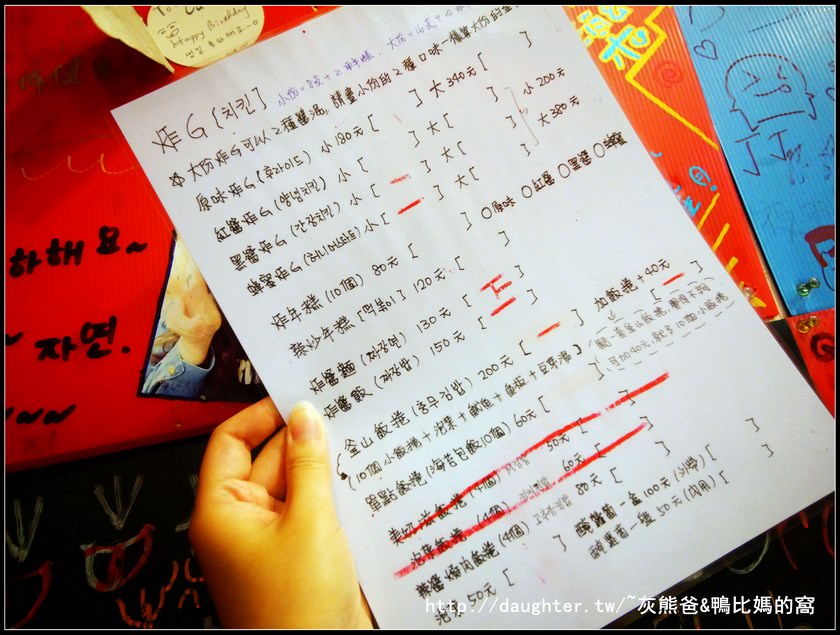 To Cu
Happy Birthday
炸G [치킨]
大份炸G可以2種醬
原味炸G (후라이드) 小180元 [ ] 大340元 [ ]
紅醬炸G (양념치킨) 小 [ ] 大 [ ] 小200元
黑醬炸G (간장치킨) 小 [ ] 大 [ ] 大380元
蜂蜜炸G (허니머스타드) 小 [ ] 大 [ ]
○原味 ○紅醬 ○黑醬 ○蜂蜜
炸年糕 (10個) 80元 [ ]
辣炒年糕 [떡볶이] 120元 [ ]
炸醬麵 (짜장면) 130元 [ ]
炸醬飯 (짜장밥) 150元 [ ]
加飯捲+40元 [ ]
釜山飯捲 (충무김밥) 200元 [ ]
(10個小飯捲+泡菜+魷魚+魚板+豆芽湯)
單點飯捲 (海苔包飯10個) 60元 [ ]
飯捲 (4個) 50元 [ ]
泡菜飯捲 (4個) 60元 [ ]
辣醬燒肉飯捲 (4個) 80元 [ ]
醃蘿蔔一盒100元 (外帶) [ ]
醃蘿蔔一盤50元 (內用) [ ]
50元 [ ]
하해요~
자연.
http://daughter.tw/~灰熊爸&鴨比媽的窩